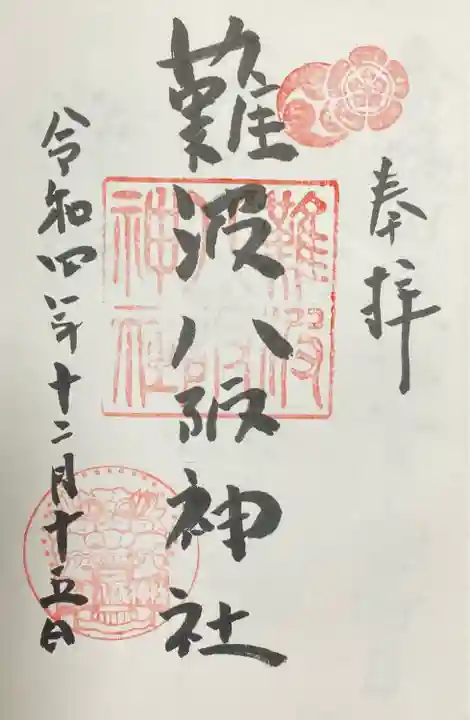 奉拝
難波八阪神社
令和四年十二月十五日
難波八阪神社